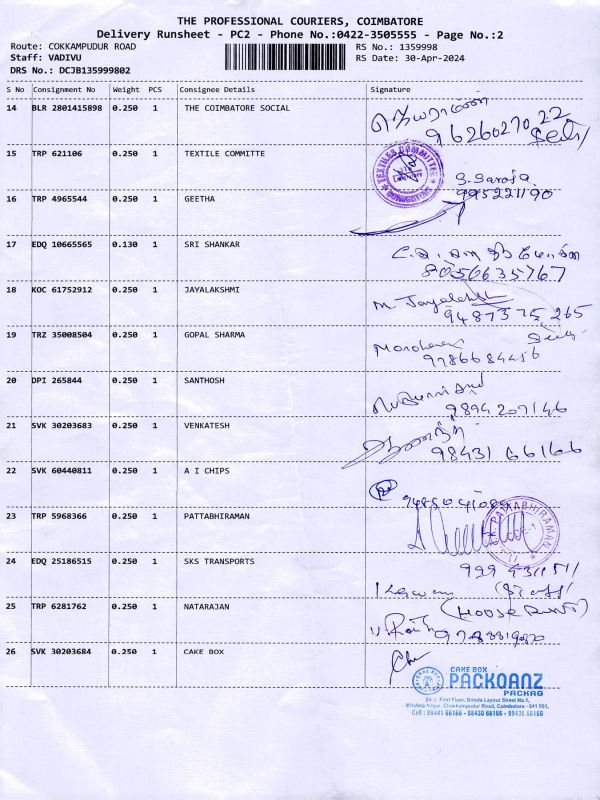 THE PROFESSIONAL COURIERS, COIMBATORE
Delivery Runsheet - PC2 - Phone No.:0422-3505555 - Page No.:2
Route: COKKAMPUDUR ROAD RS No.: 1359998
Staff: VADIVU RS Date: 30-Apr-2024
DRS No.: DCJB135999802
S No Consignment No Weight PCS Consignee Details Signature
14 BLR 2801415898 0.250 1 THE COIMBATORE SOCIAL
9626027022
15 TRP 621106 0.250 1 TEXTILE COMMITTE
TEXTILES COMMITTEE
S. Saroja
995221190
16 TRP 4965544 0.250 1 GEETHA
17 EDQ 10665565 0.130 1 SRI SHANKAR
8056635767
18 KOC 61752912 0.250 1 JAYALAKSHMI
M. Jayalakshmi
9487375265
19 TRZ 35008504 0.250 1 GOPAL SHARMA
9786684456
20 DPI 265844 0.250 1 SANTHOSH
9894207146
21 SVK 30203683 0.250 1 VENKATESH
98431 66166
22 SVK 60440811 0.250 1 A I CHIPS
23 TRP 5968366 0.250 1 PATTABHIRAMAN
PATTABHIRAMAN
24 EDQ 25186515 0.250 1 SKS TRANSPORTS
25 TRP 6281762 0.250 1 NATARAJAN
26 SVK 30203684 0.250 1 CAKE BOX
CAKE BOX
PACKOANZ
PACKAG
First Floor, Brinda Layout Street No.1,
Krishna Nagar, Chokkampudur Road, Coimbatore - 641 001.
Cell : 98441 66166 - 98430 66166 - 98435 66166